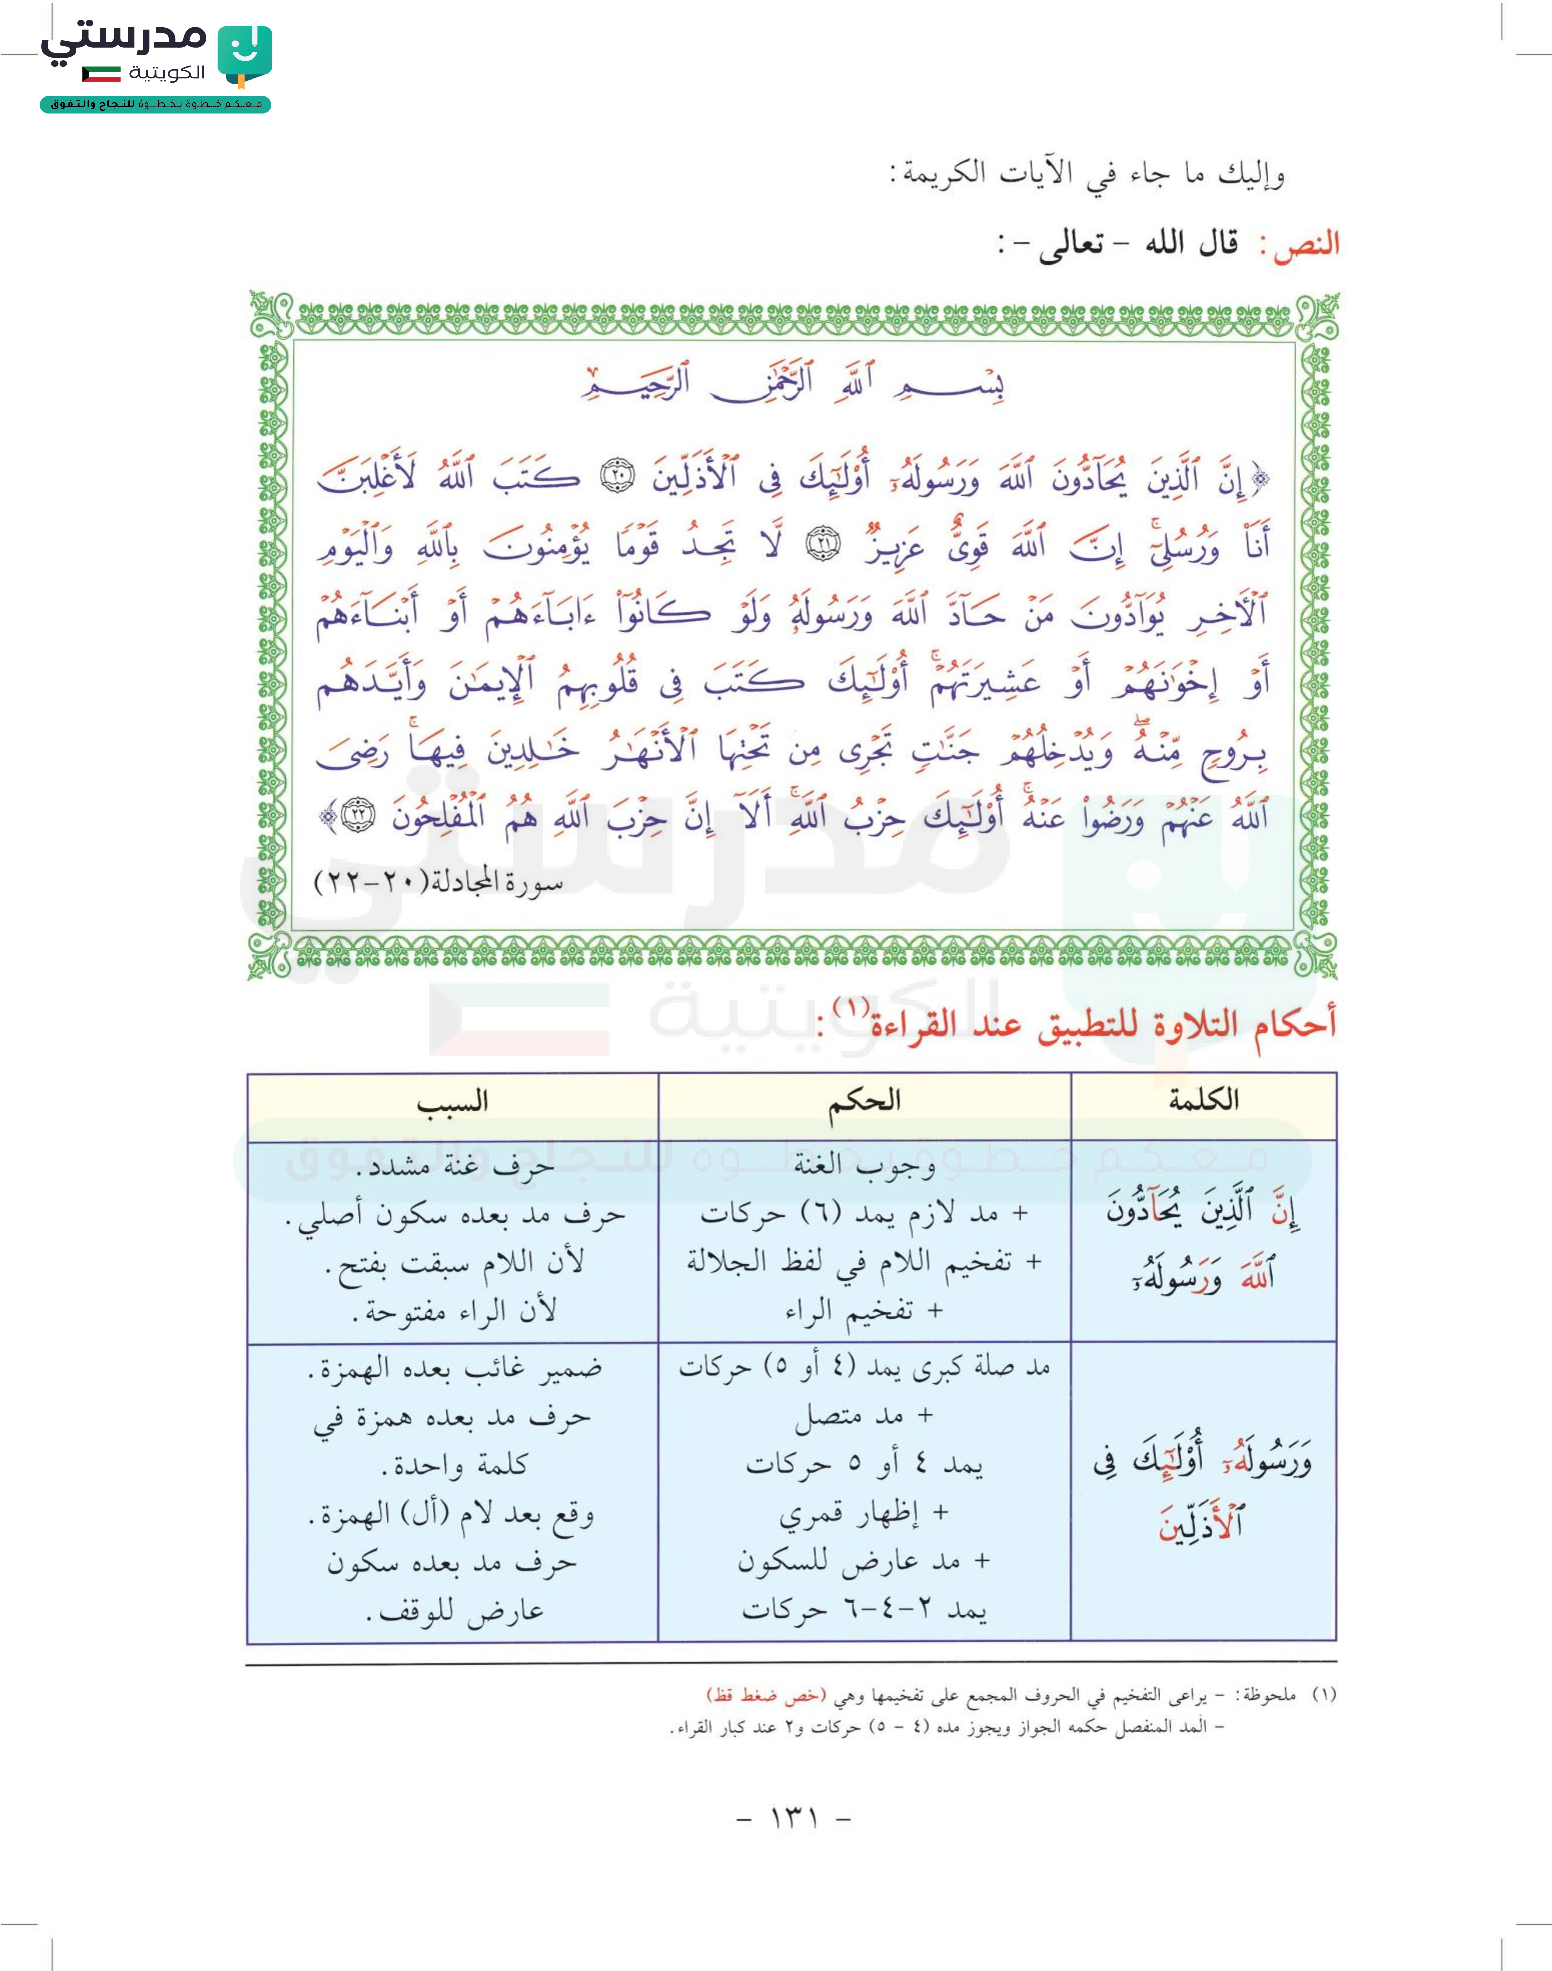 مدرستي
الكويتية
معكم خطوة بخطوة للنجاح والتفوق
وإليك ما جاء في الآيات الكريمة:
النص: قال الله - تعالى -:
بِسْمِ ٱللَّهِ ٱلرَّحْمَٰنِ ٱلرَّحِيمِ
﴿إِنَّ ٱلَّذِينَ يُحَآدُّونَ ٱللَّهَ وَرَسُولَهُۥٓ أُوْلَٰٓئِكَ فِى ٱلْأَذَلِّينَ ٢٠ كَتَبَ ٱللَّهُ لَأَغْلِبَنَّ
أَنَا۠ وَرُسُلِىٓۚ إِنَّ ٱللَّهَ قَوِىٌّ عَزِيزٌ ٢١ لَّا تَجِدُ قَوْمًا يُؤْمِنُونَ بِٱللَّهِ وَٱلْيَوْمِ
ٱلْأَخِرِ يُوَآدُّونَ مَنْ حَآدَّ ٱللَّهَ وَرَسُولَهُۥ وَلَوْ كَانُوٓا۟ ءَابَآءَهُمْ أَوْ أَبْنَآءَهُمْ
أَوْ إِخْوَٰنَهُمْ أَوْ عَشِيرَتَهُمْۚ أُوْلَٰٓئِكَ كَتَبَ فِى قُلُوبِهِمُ ٱلْإِيمَٰنَ وَأَيَّدَهُم
بِرُوحٍ مِّنْهُۖ وَيُدْخِلُهُمْ جَنَّٰتٍ تَجْرِى مِن تَحْتِهَا ٱلْأَنْهَٰرُ خَٰلِدِينَ فِيهَاۚ رَضِىَ
ٱللَّهُ عَنْهُمْ وَرَضُوا۟ عَنْهُۚ أُوْلَٰٓئِكَ حِزْبُ ٱللَّهِۚ أَلَآ إِنَّ حِزْبَ ٱللَّهِ هُمُ ٱلْمُفْلِحُونَ ٢٢﴾
سورة المجادلة(٢٠-٢٢)
أحكام التلاوة للتطبيق عند القراءة(١):
الكلمة الحكم السبب
إِنَّ ٱلَّذِينَ يُحَآدُّونَ
ٱللَّهَ وَرَسُولَهُۥٓ
وجوب الغنة
+ مد لازم يمد (٦) حركات
+ تفخيم اللام في لفظ الجلالة
+ تفخيم الراء
حرف غنة مشدد.
حرف مد بعده سكون أصلي.
لأن اللام سبقت بفتح.
لأن الراء مفتوحة.
وَرَسُولَهُۥٓ أُوْلَٰٓئِكَ فِى
ٱلْأَذَلِّينَ
مد صلة كبرى يمد (٤ أو ٥) حركات
+ مد متصل
يمد ٤ أو ٥ حركات
+ إظهار قمري
+ مد عارض للسكون
يمد ٢-٤-٦ حركات
ضمير غائب بعده الهمزة.
حرف مد بعده همزة في
كلمة واحدة.
وقع بعد لام (أل) الهمزة.
حرف مد بعده سكون
عارض للوقف.
(١) ملحوظة: - يراعى التفخيم في الحروف المجمع على تفخيمها وهي (خص ضغط قظ)
- المد المنفصل حكمه الجواز ويجوز مده (٤ - ٥) حركات و٢ عند كبار القراء.
- ١٣١ -